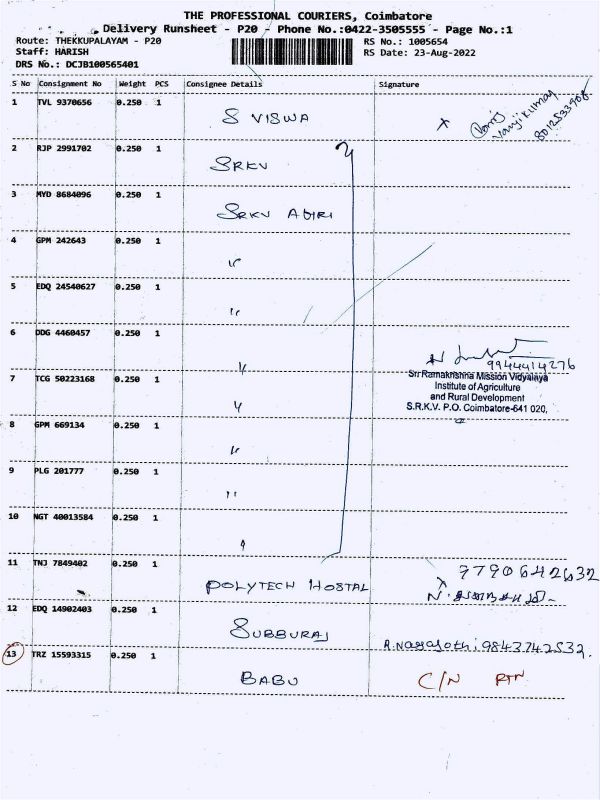 THE PROFESSIONAL COURIERS, Coimbatore
Delivery Runsheet - P20 - Phone No.:0422-3505555 - Page No.:1
Route: THEKKUPALAYAM - P20 RS No.: 1005654
Staff: HARISH RS Date: 23-Aug-2022
DRS No.: DCJB100565401
S No Consignment No Weight PCS Consignee Details Signature
1 TVL 9370656 0.250 1
S VISWA X
2 RJP 2991702 0.250 1
SRKV
3 MYD 8684096 0.250 1
SRKV AGIRI
4 GPM 242643 0.250 1
"
5 EDQ 24540627 0.250 1
"
6 DDG 4460457 0.250 1
"
9944414276
7 TCG 50223168 0.250 1
Sri Ramakrishna Mission Vidyalaya
Institute of Agriculture
and Rural Development
S.R.K.V. P.O. Coimbatore-641 020.
"
8 GPM 669134 0.250 1
"
9 PLG 201777 0.250 1
"
10 NGT 40013584 0.250 1
"
11 TNJ 7849402 0.250 1
9790642632
POLYTECH HOSTAL X
12 EDQ 14902403 0.250 1
SUBBURAJ 9843742532.
13 TRZ 15593315 0.250 1
BABU C/N RTN